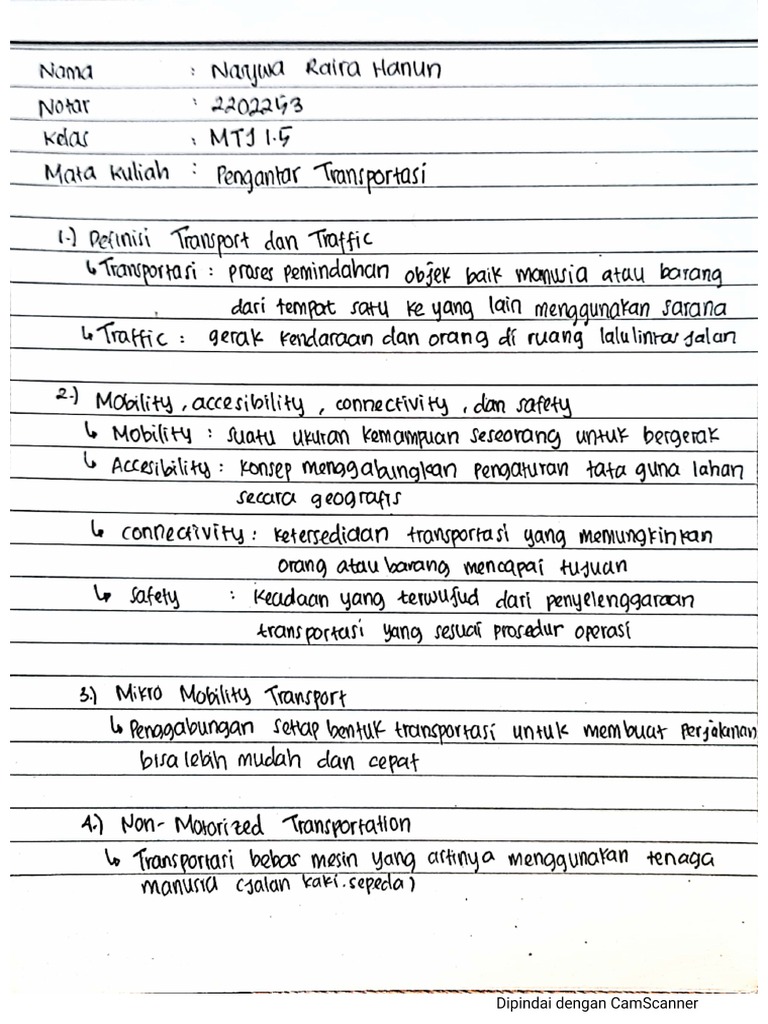 Nama : Narywa Raira Hanun
Notar : 2202253
Kelas : MTJ 1.5
Mata Kuliah : Pengantar Transportasi
1.) Definisi Transport dan Traffic
↳ Transportasi : proses pemindahan objek baik manusia atau barang
dari tempat satu ke yang lain menggunakan sarana
↳ Traffic : gerak kendaraan dan orang di ruang lalulintas jalan
2.) Mobility, accesibility, connectivity, dan safety
↳ Mobility : suatu ukuran kemampuan seseorang untuk bergerak
↳ Accesibility : konsep menggabungkan pengaturan tata guna lahan
secara geografis
↳ connectivity : ketersediaan transportasi yang memungkinkan
orang atau barang mencapai tujuan
↳ safety : keadaan yang terwujud dari penyelenggaraan
transportasi yang sesuai prosedur operasi
3.) Mikro Mobility Transport
↳ Penggabungan setiap bentuk transportasi untuk membuat perjalanan
bisa lebih mudah dan cepat
4.) Non-Motorized Transportation
↳ Transportasi bebas mesin yang artinya menggunakan tenaga
manusia (jalan kaki.sepeda)
Dipindai dengan CamScanner